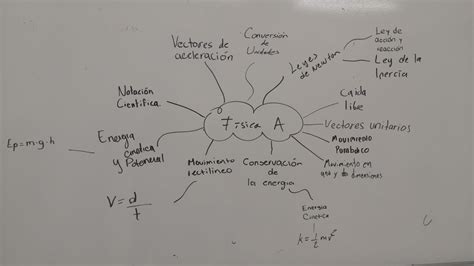 Conversión
de
Unidades
Vectores de
aceleración
Leyes
de Newton
Ley de
acción y
reacción
Ley de la
Inercia
Notación
Científica
Caida
libre
Física A
Vectores unitarios
Energía
cinética
y Potencial
Ep=m·g·h
Movimiento
Parabólico
Movimiento
rectilineo
Conservación
de la
energía
Movimiento en
dimensiones
V = d
t
Energía
Cinética
k = 1/2 mv²